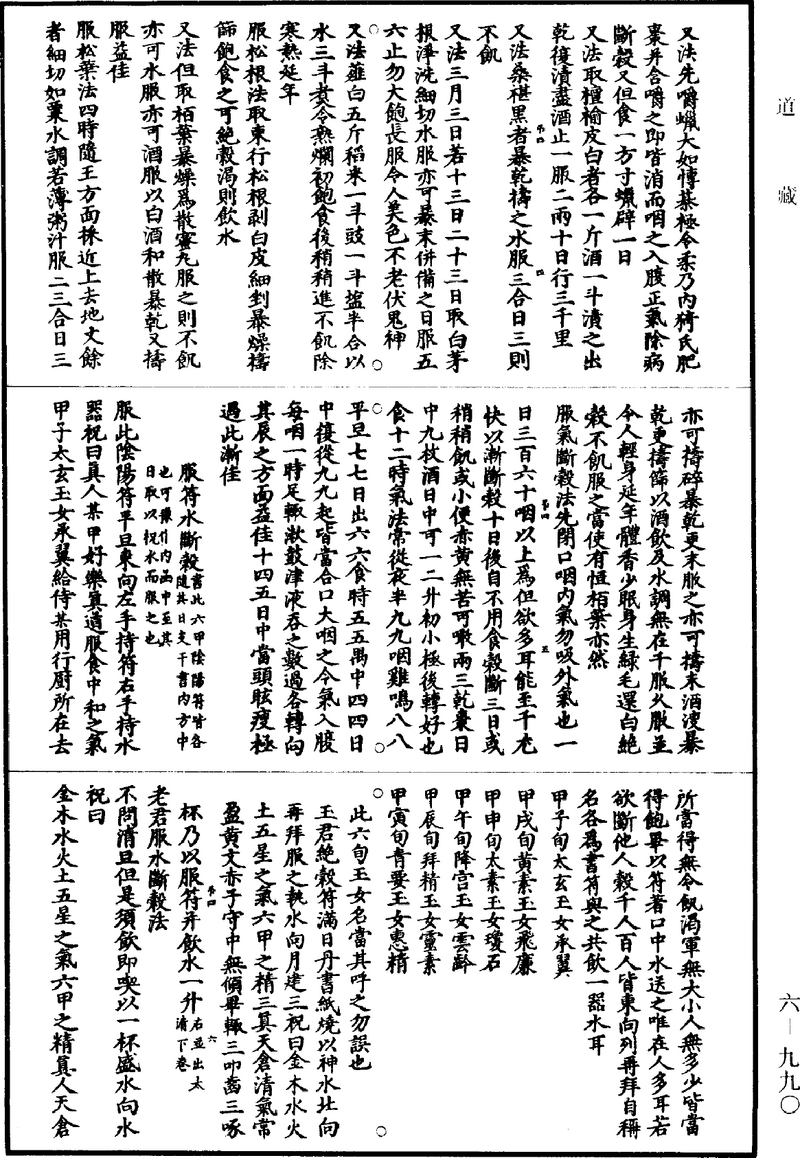 道藏
又法先嚼蠟大如博棊極令柔乃內猗氏肥
棗并合嚼之即皆消而咽之入腹正氣除病
斷穀又但食一方寸蠟辟一日
又法取檀榆皮白者各一斤酒一斗漬之出
乾復漬盡酒止一服二兩十日行三千里
又法桑椹黑者暴乾擣之水服三合日三則
不飢
又法三月三日若十三日二十三日取白茅
根淨洗細切水服亦可暴末併備之日服五
六止勿大飽長服令人美色不老伏鬼神
又法薤白五斤稻米一斗豉一斗塩半合以
水三斗煮令熟爛初飽食後稍稍進不飢除
寒熱延年
服松根法取東行松根剥白皮細剉暴燥擣
篩飽食之可絕穀渴則飲水
又法但取栢葉暴燥爲散蜜丸服之則不飢
亦可水服亦可酒服以白酒和散暴乾又擣
服益佳
服松葉法四時隨王方面採近上去地丈餘
者細切如粟水調若薄粥汁服二三合日三
亦可擣碎暴乾更末服之亦可擣末酒溲暴
乾更擣篩以酒飲及水調無在千服久服並
令人輕身延年體香少眠身生緑毛還白絕
穀不飢服之當使有恒栢葉亦然
服氣斷穀法先閉口咽內氣勿吸外氣也一
日三百六十咽以上爲但欲多耳能至千尤
快以漸斷穀十日後自不用食穀斷三日或
稍稍飢或小便赤黄無苦可噉兩三乾棗日
中九枚酒日中可一二升初小極後轉好也
食十二時氣法常從夜半九九咽雞鳴八八
平旦七七日出六六食時五五禺中四四日
中復從九九起皆當合口大咽之令氣入腹
每咽一時足輒漱鼓津液吞之數過各轉向
其辰之方面益佳十四五日中當頭眩瘦極
過此漸佳
服符水斷穀書此六甲陰陽符皆各隨其日支干書內方中也可兼作內函中至其日取以祝水而服之也
服此陰陽符平旦東向左手持符右手持水
器祝曰真人某甲好樂真道服食中和之氣
甲子太玄玉女承翼給侍某用行厨所在去
所當得無令飢渴軍無大小人無多少皆當
得飽畢以符著口中水送之唯在人多耳若
欲斷他人穀千人百人皆東向列再拜自稱
名各爲書符與之共飲一器水耳
甲子旬太玄玉女承翼
甲戌旬黄素玉女飛廉
甲申旬太素玉女瓊石
甲午旬降宫玉女雲齡
甲辰旬拜精玉女靈素
甲寅旬青要玉女惠精
此六旬玉女名當其呼之勿誤也
玉君絕穀符滿日丹書紙燒以神水北向
再拜服之執水向月建三祝曰金木水火
土五星之氣六甲之精三真天倉清氣常
盈黄父赤子守中無傾畢輒三叩齒三啄
杯乃以服符并飲水一升右並出太清下卷
老君服水斷穀法
不問清旦但是須飲即喫以一杯盛水向水
祝曰
金木水火土五星之氣六甲之精真人天倉
六－九九〇